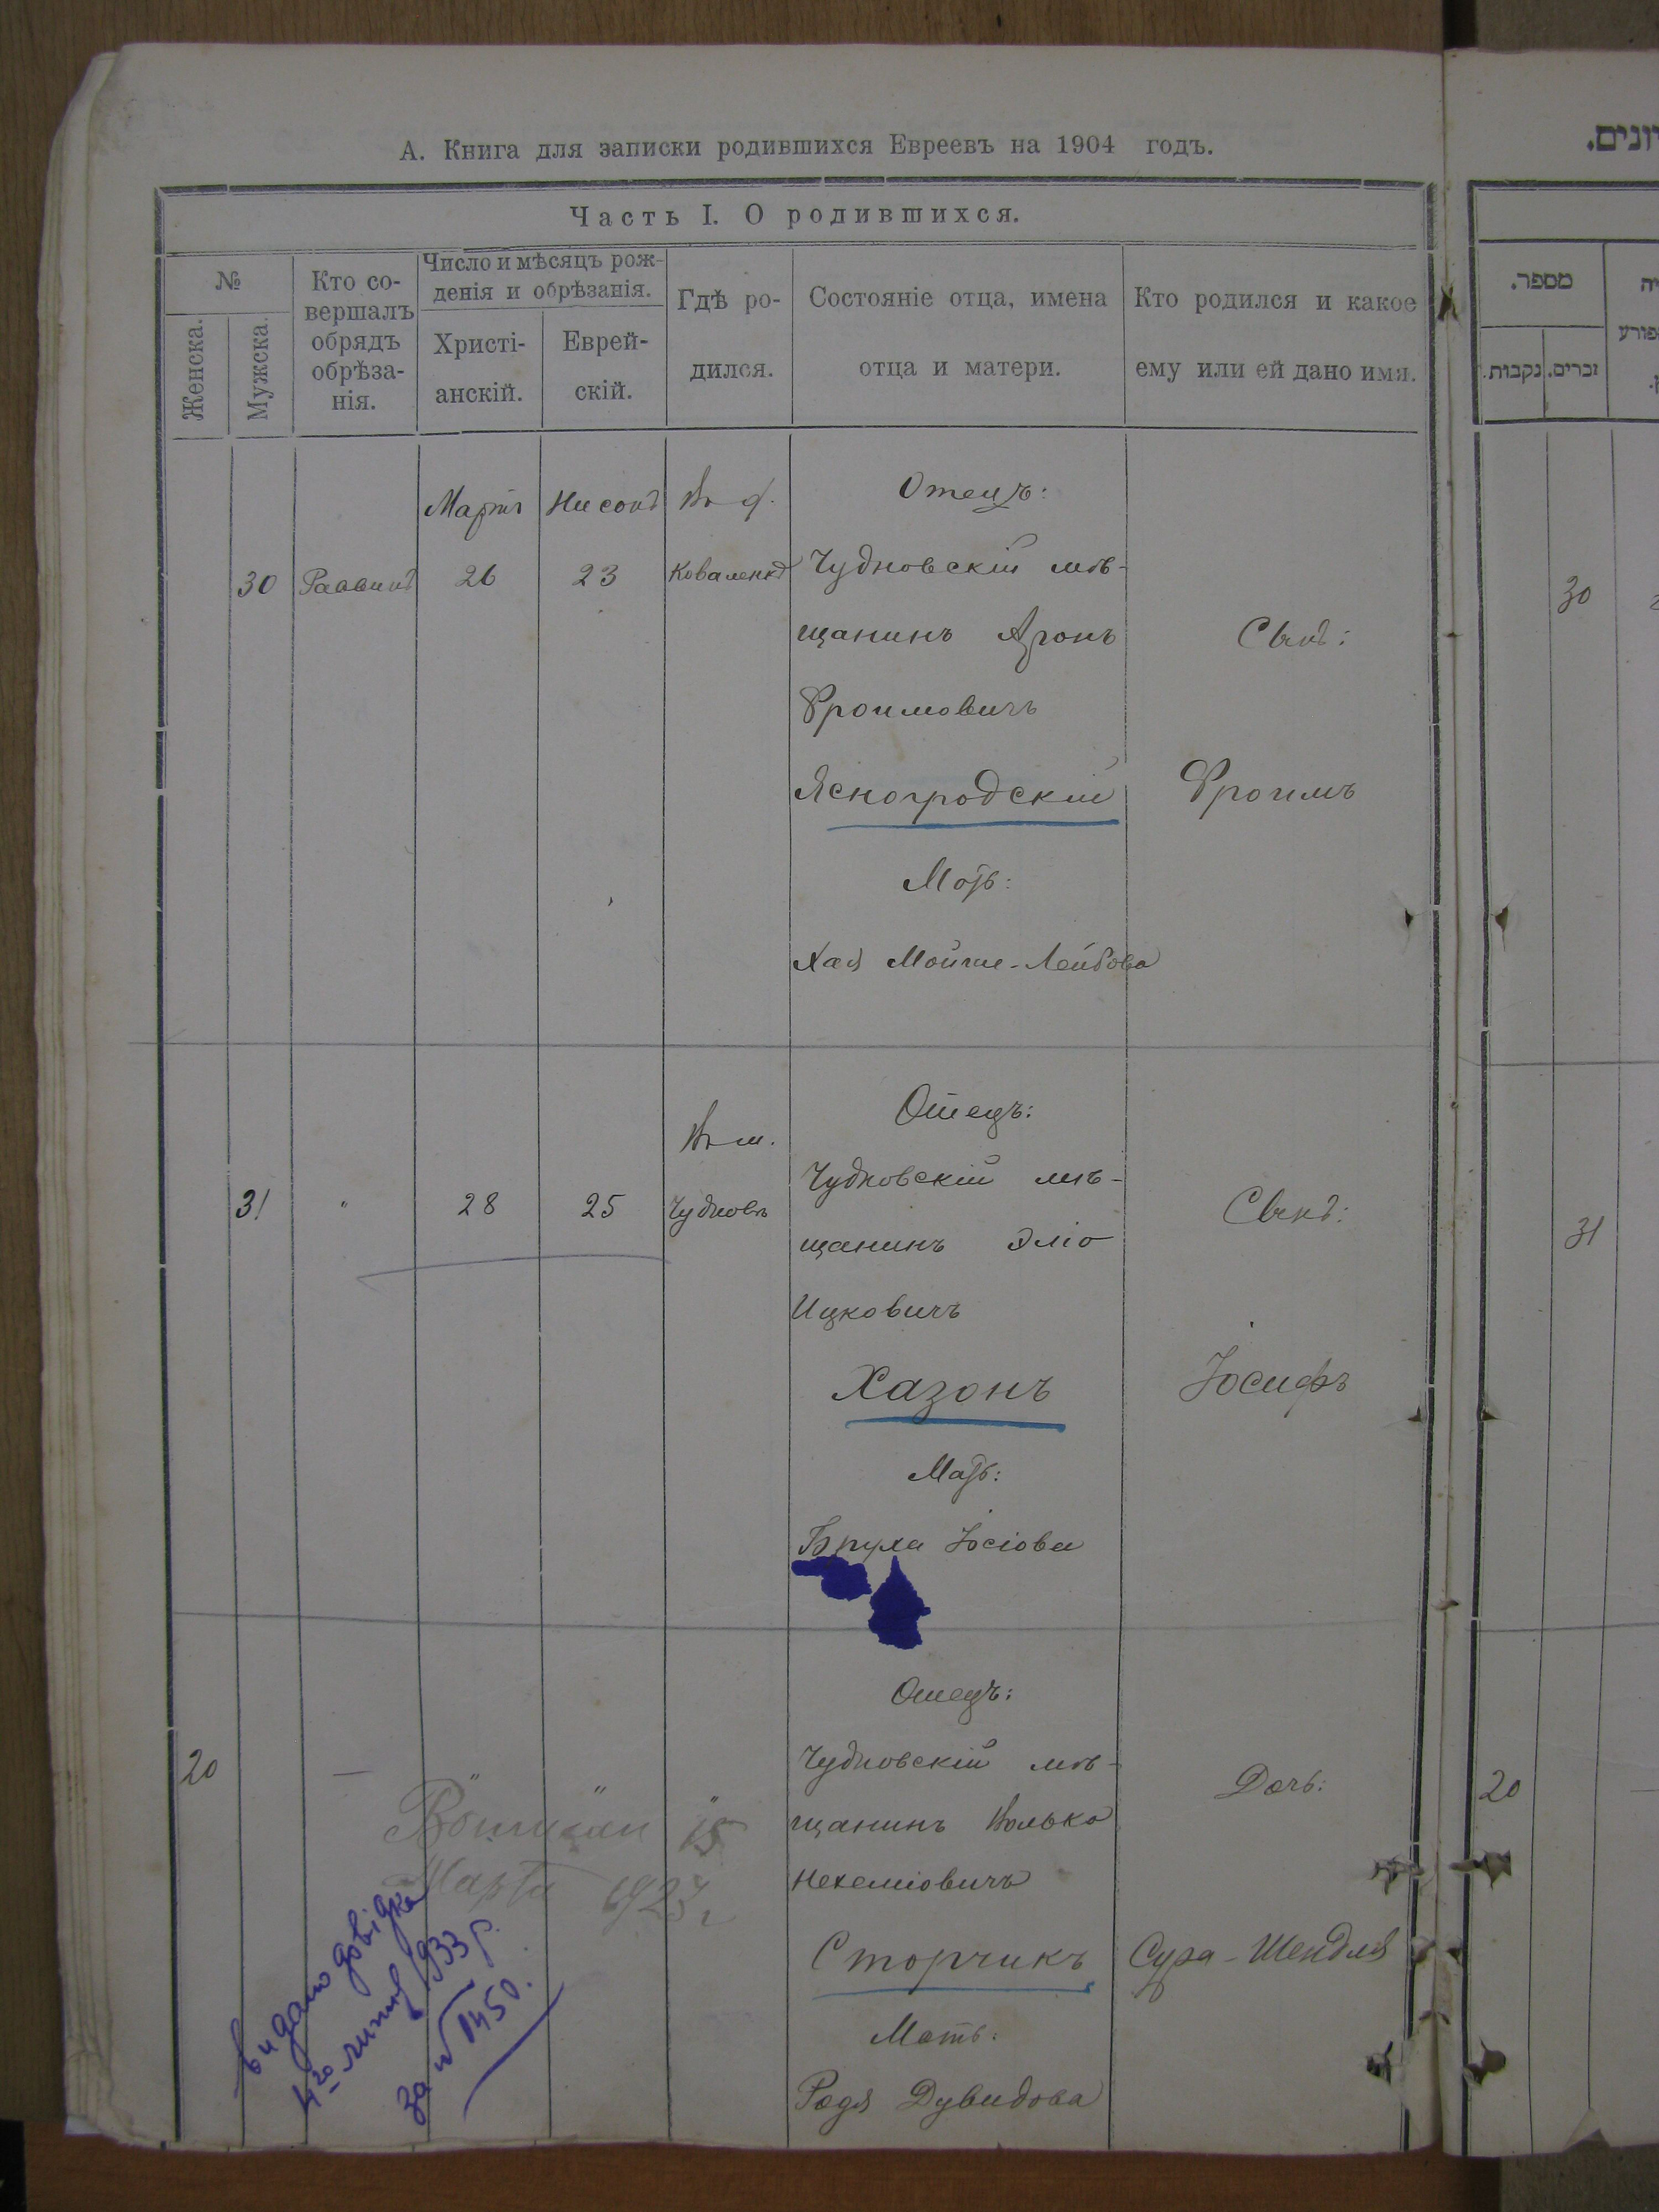 А. Книга для записки родившихся Евреевъ на 1904 годъ.
Часть I. О родившихся.
№
Женска.
Мужска.
Кто со-
вершалъ
обрядъ
обрѣза-
нія.
Число и мѣсяцъ рож-
денія и обрѣзанія.
Христі-
анскій.
Еврей-
скій.
Гдѣ ро-
дился.
Состояніе отца, имена
отца и матери.
Кто родился и какое
ему или ей дано имя.
מספר.
נקבות.
זכרים.
Мартъ Нисонъ Въ
Отецъ:
30 Раввинъ 26 23
Чудновскій мѣ-
щанинъ Аронъ
Фроимовичъ
Ясногродскій
Мать:
Хая Мойше-Лейбова
Сынъ:
Фроимъ
30
Въ м.
31 " 28 25 Чудновъ
Отецъ:
Чудновскій мѣ-
щанинъ Эліо
Ицковичъ
Хазонъ
Мать:
Бруха Іосіова
Сынъ:
Іосифъ
31
20 — " " "
Отецъ:
Чудновскій мѣ-
щанинъ Волько
Нехеміовичъ
Сторчикъ
Мать:
Родя Дувидова
Дочь:
Сура-Шендля
20
15
Марта 1923 г
видано довідка
4го липня 1933 р.
за № 1450.